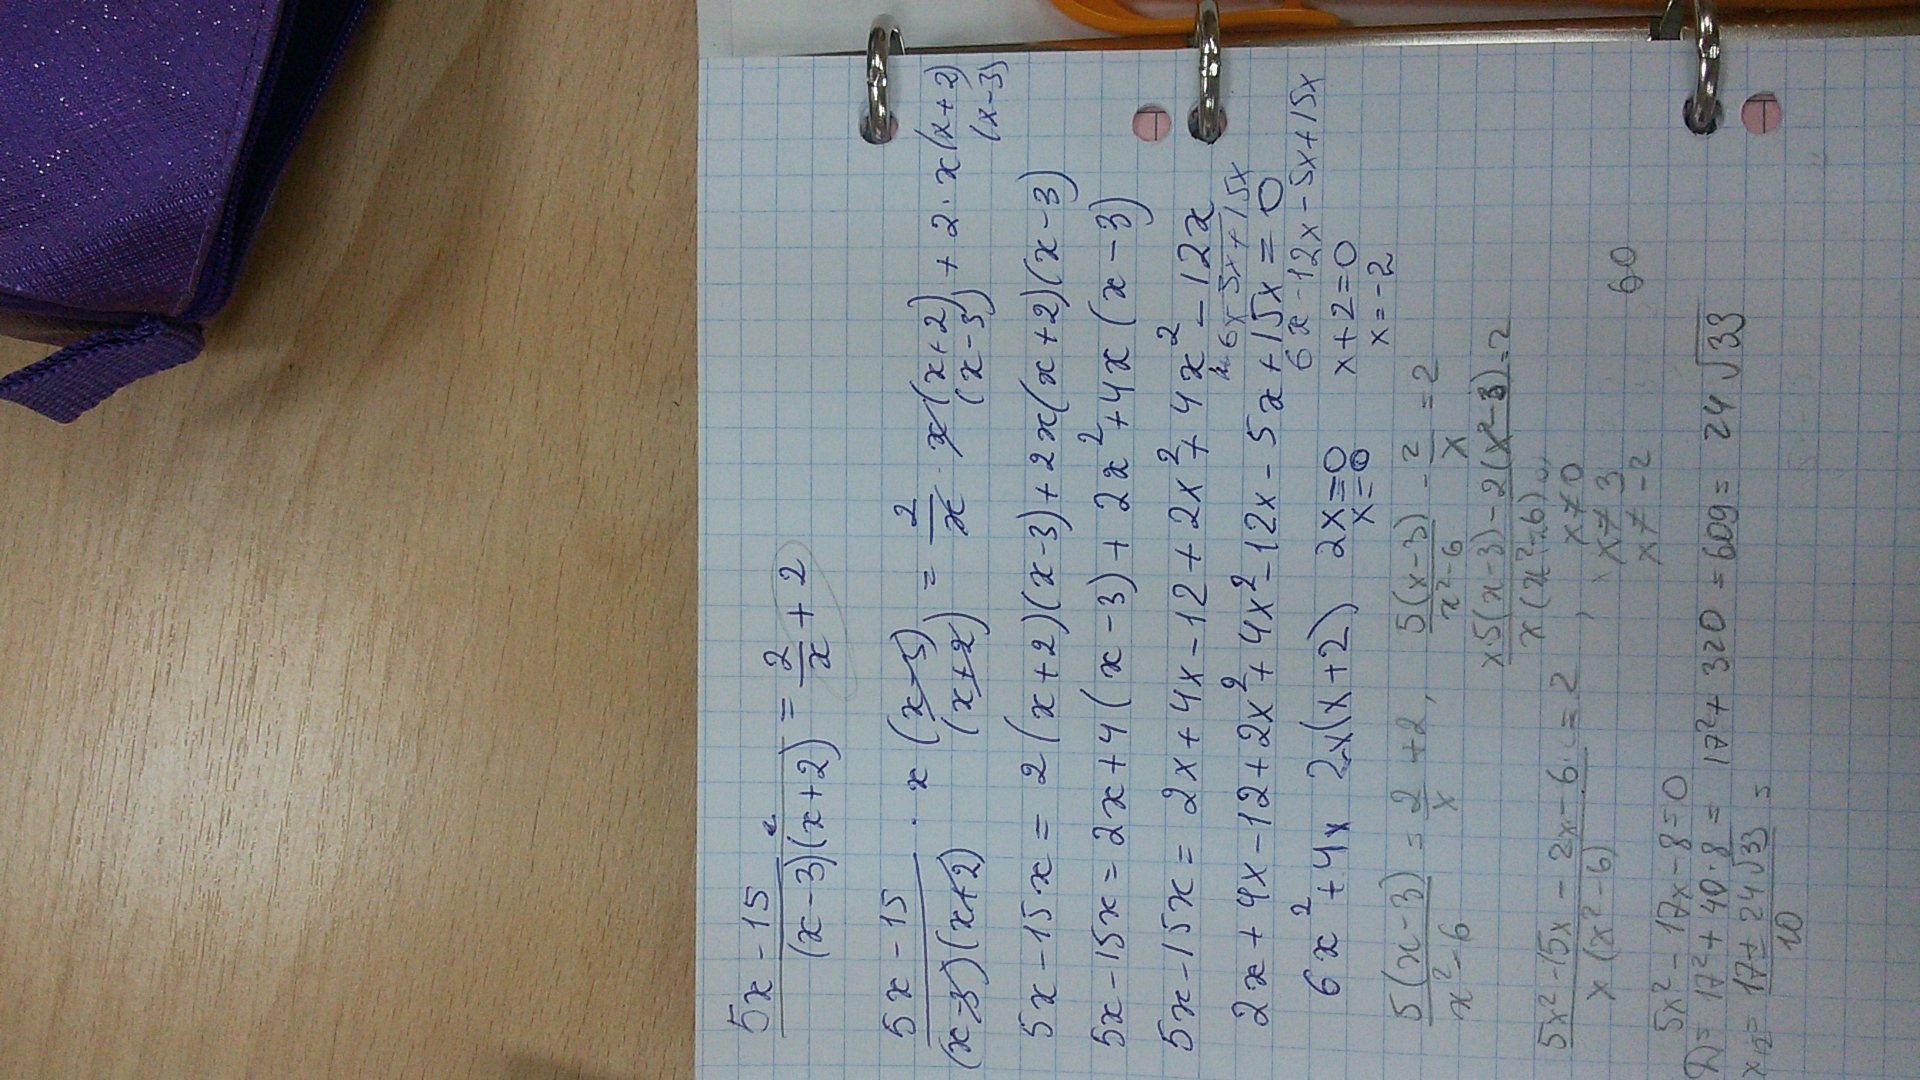 5x - 15 / (x - 3)(x + 2) = 2/x + 2
5x - 15 / (x - 3)(x + 2) · x (x - 3)(x + 2) = 2/x · x (x + 2)(x - 3) + 2 · x (x + 2)(x - 3)
5x - 15 · x = 2 (x + 2)(x - 3) + 2x (x + 2)(x - 3)
5x - 15x = 2x + 4 (x - 3) + 2x² + 4x (x - 3)
5x - 15x = 2x + 4x - 12 + 2x² + 4x² - 12x
6x - 5x + 15x
2x + 4x - 12 + 2x² + 4x² - 12x - 5x + 15x = 0
6x - 12x - 5x + 15x
6x² + 4x 2x(x + 2) 2x = 0 x + 2 = 0
x = 0 x = -2
5(x - 3) / x² - 6 = 2/x + 2, 5(x - 3) / x² - 6 - 2/x = 2
x5(x - 3) - 2(x² - 3) = 2
5x² - 15x - 2x - 6 / x(x² - 6) = 2
x ≠ 0
x ≠ 3
x ≠ -2
60
5x² - 17x - 8 = 0
D = 17² + 40 · 8 = 17² + 320 = 609 = 24√33
17 ± 24√33 / 10 =